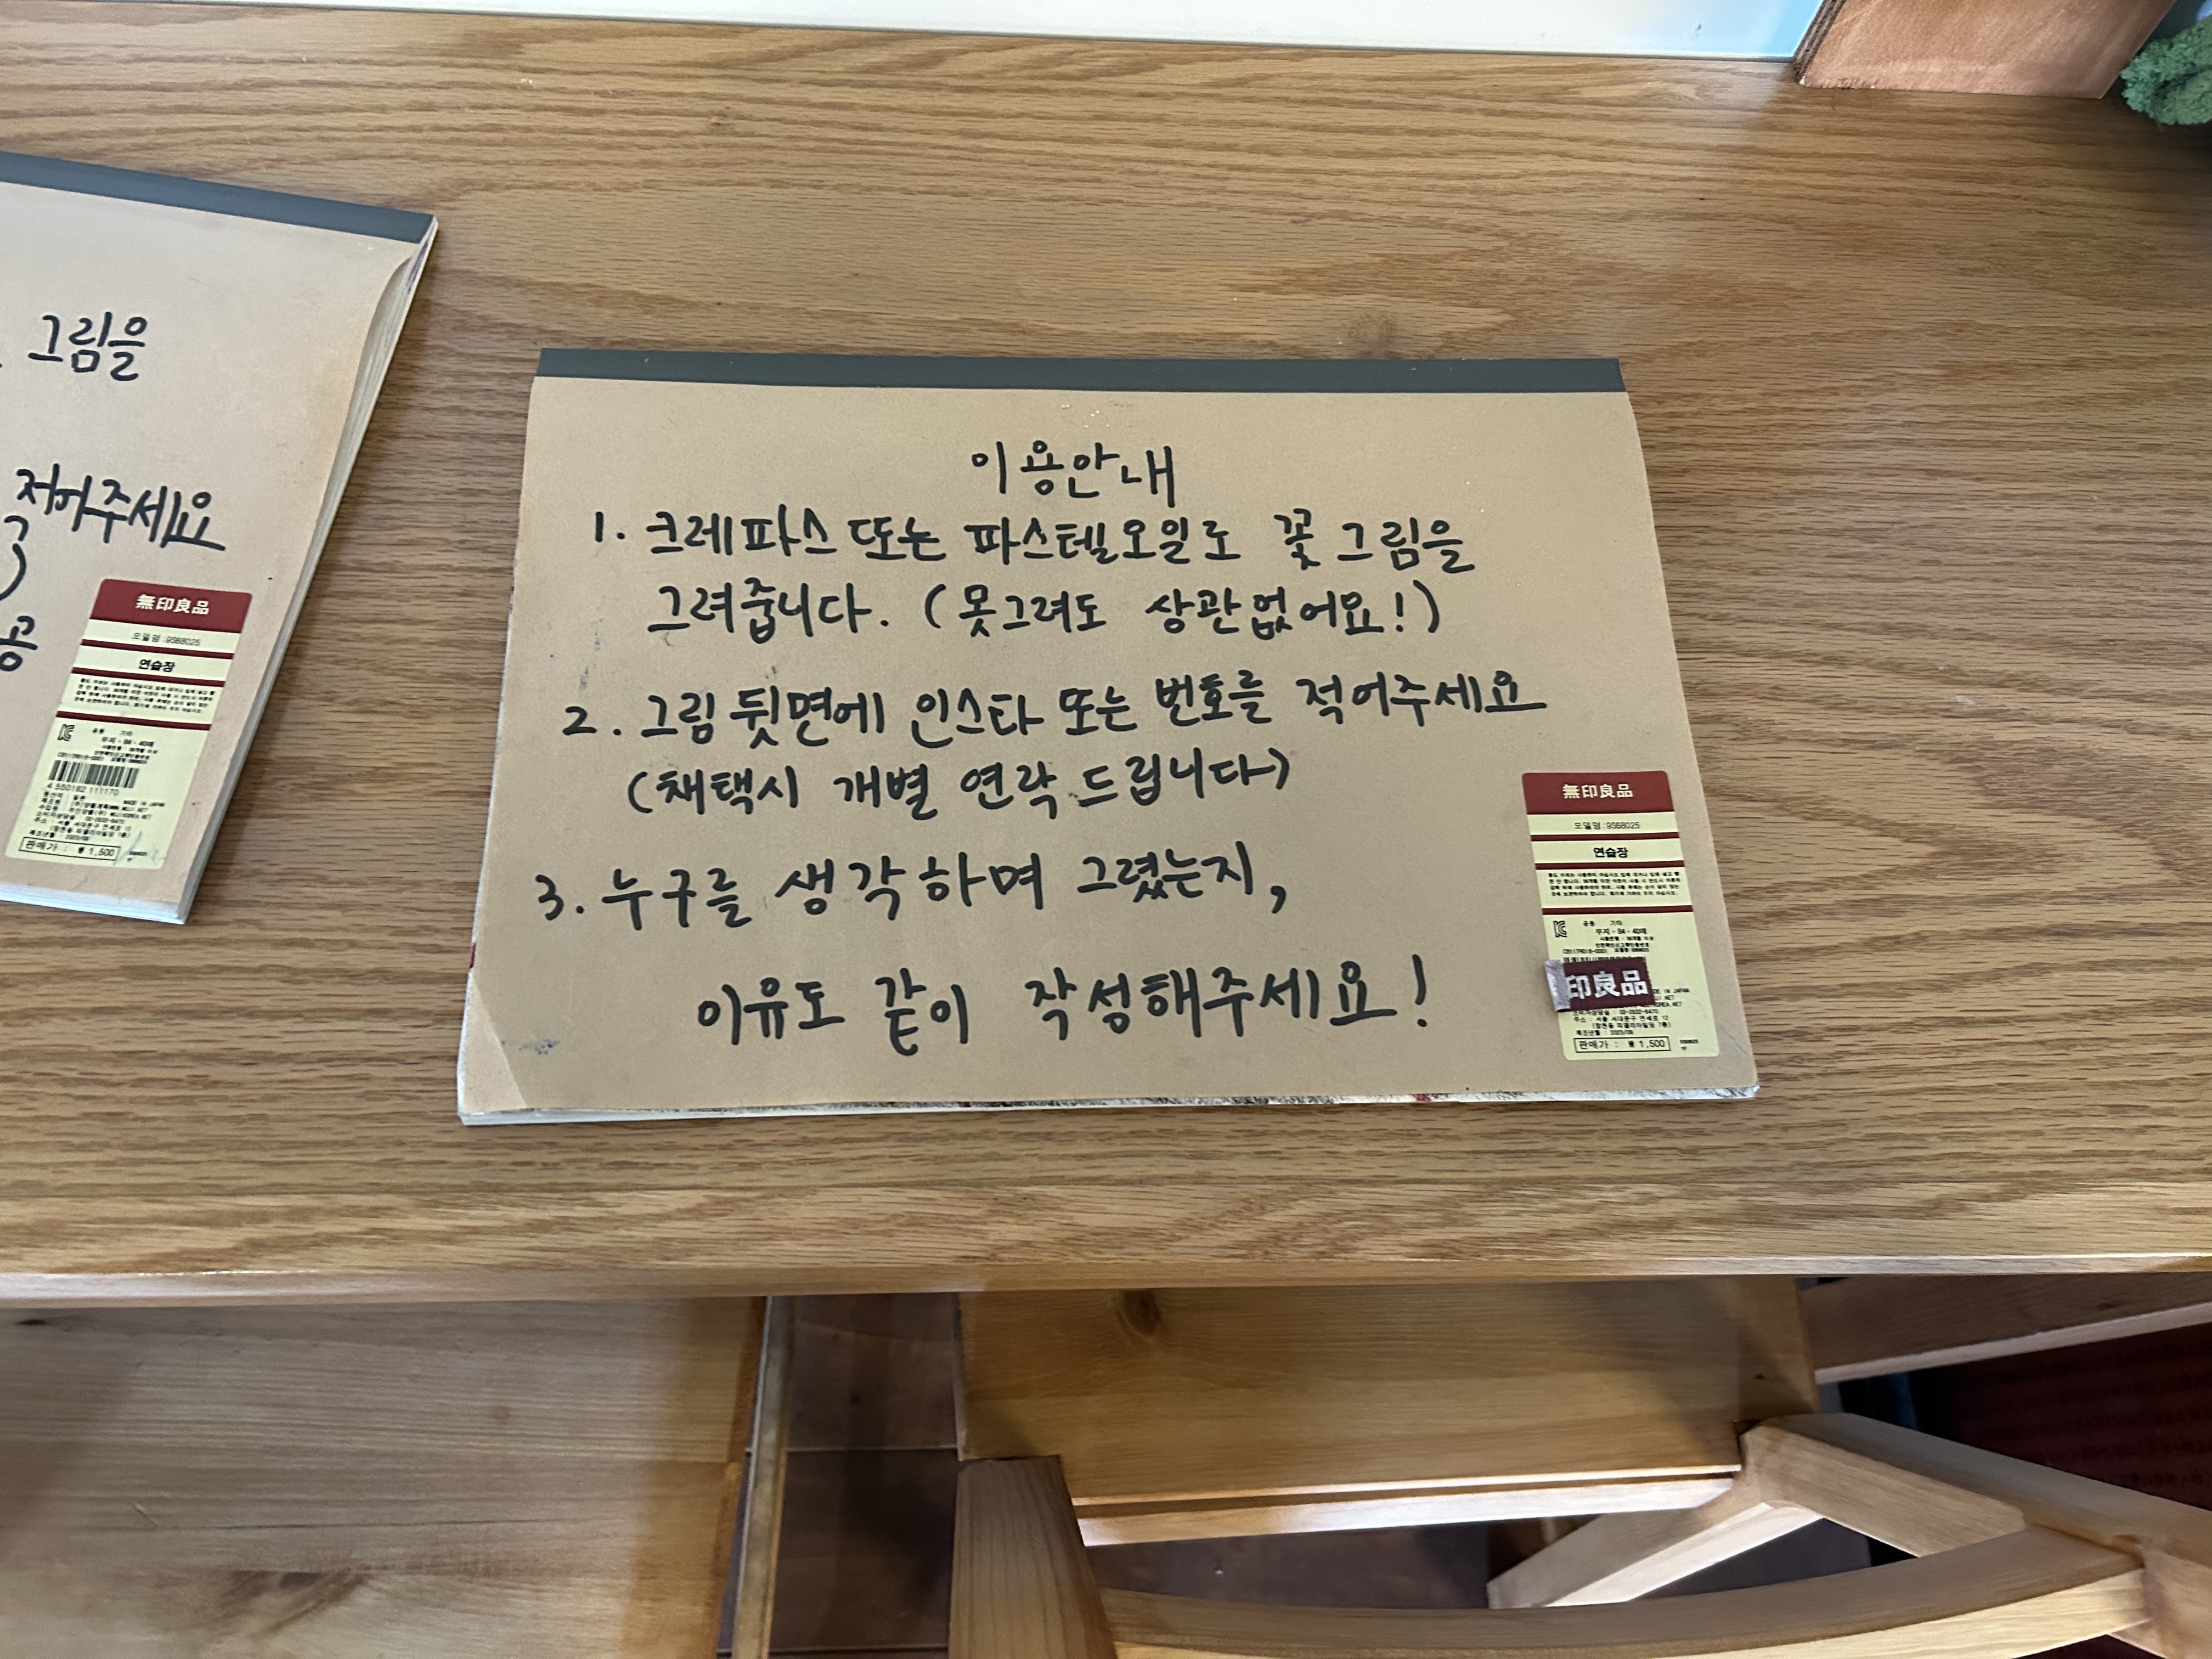 그림을
적어주세요
공
無印良品
모델명:9568025
연습장
4 550182 111170
판매가 : ₩1,500
이용안내
1. 크레파스 또는 파스텔오일로 꽃 그림을
그려줍니다. (못그려도 상관없어요!)
2. 그림 뒷면에 인스타 또는 번호를 적어주세요
(채택시 개별 연락 드립니다)
3. 누구를 생각하며 그렸는지,
이유도 같이 작성해주세요!
無印良品
모델명:9568025
연습장
印良品
판매가 : ₩1,500